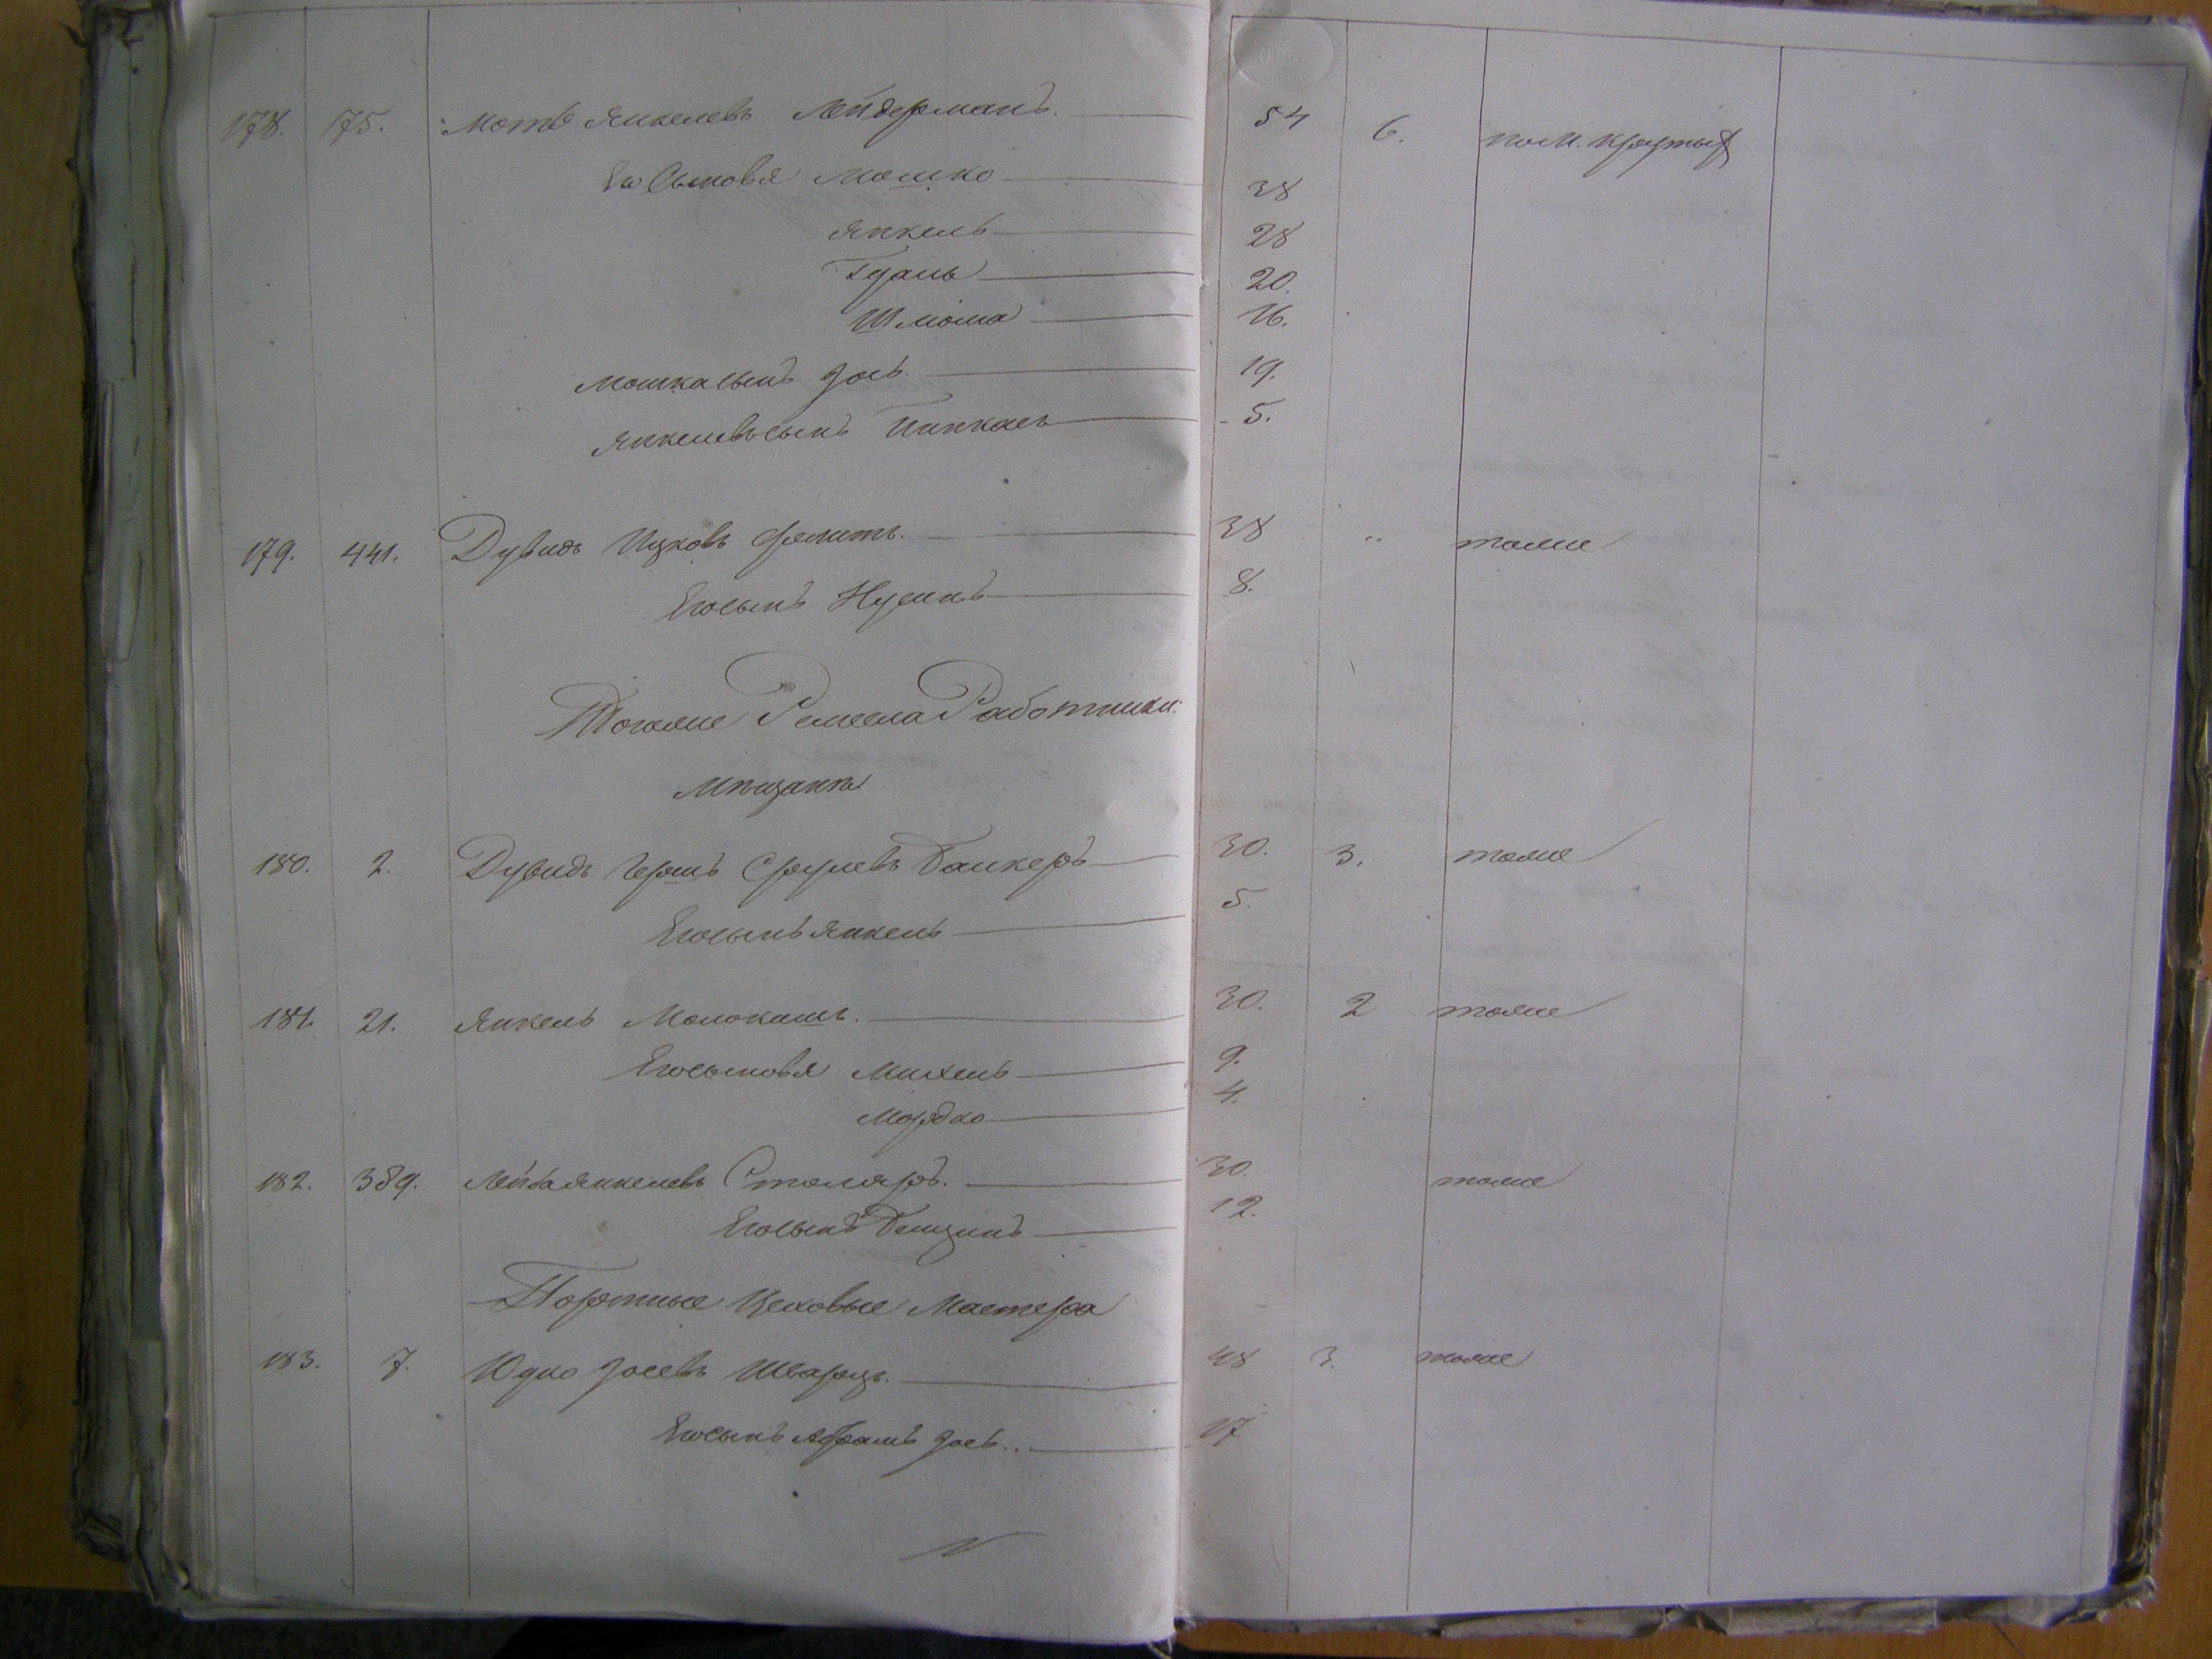 178. 175. Мотѣ Янкелевъ Лейдерманъ. 54 6. пом. Крутыхъ
Его Сыновья Мошко 38
Янкель 28
20.
Шлюма 16.
Мошка сынъ Іось 19.
Янкелевъ сынъ Пинкась 5.
179. 441. Дувидъ Ицковъ 38 „ тоже
Его сынъ Нусинъ 8.
Тогоже Ремесла Работники:
Мѣщане
180. 2. Дувидъ Гершъ Сруlевъ Банкеръ 30. 3. тоже
Его сынъ Янкель 5.
181. 21. Янкель Молокашъ. 30. 2 тоже
Его сыновья Михель 9.
Мордко 4.
182. 389. Лейба Янкелевъ Столяръ. 30. тоже
Его сынъ Бенционъ 12.
Портные Цеховые Мастера
183. 7. Юдко Іосевъ Шварцъ. 48 3. тоже
Его сынъ Абрамъ Іось.. 17